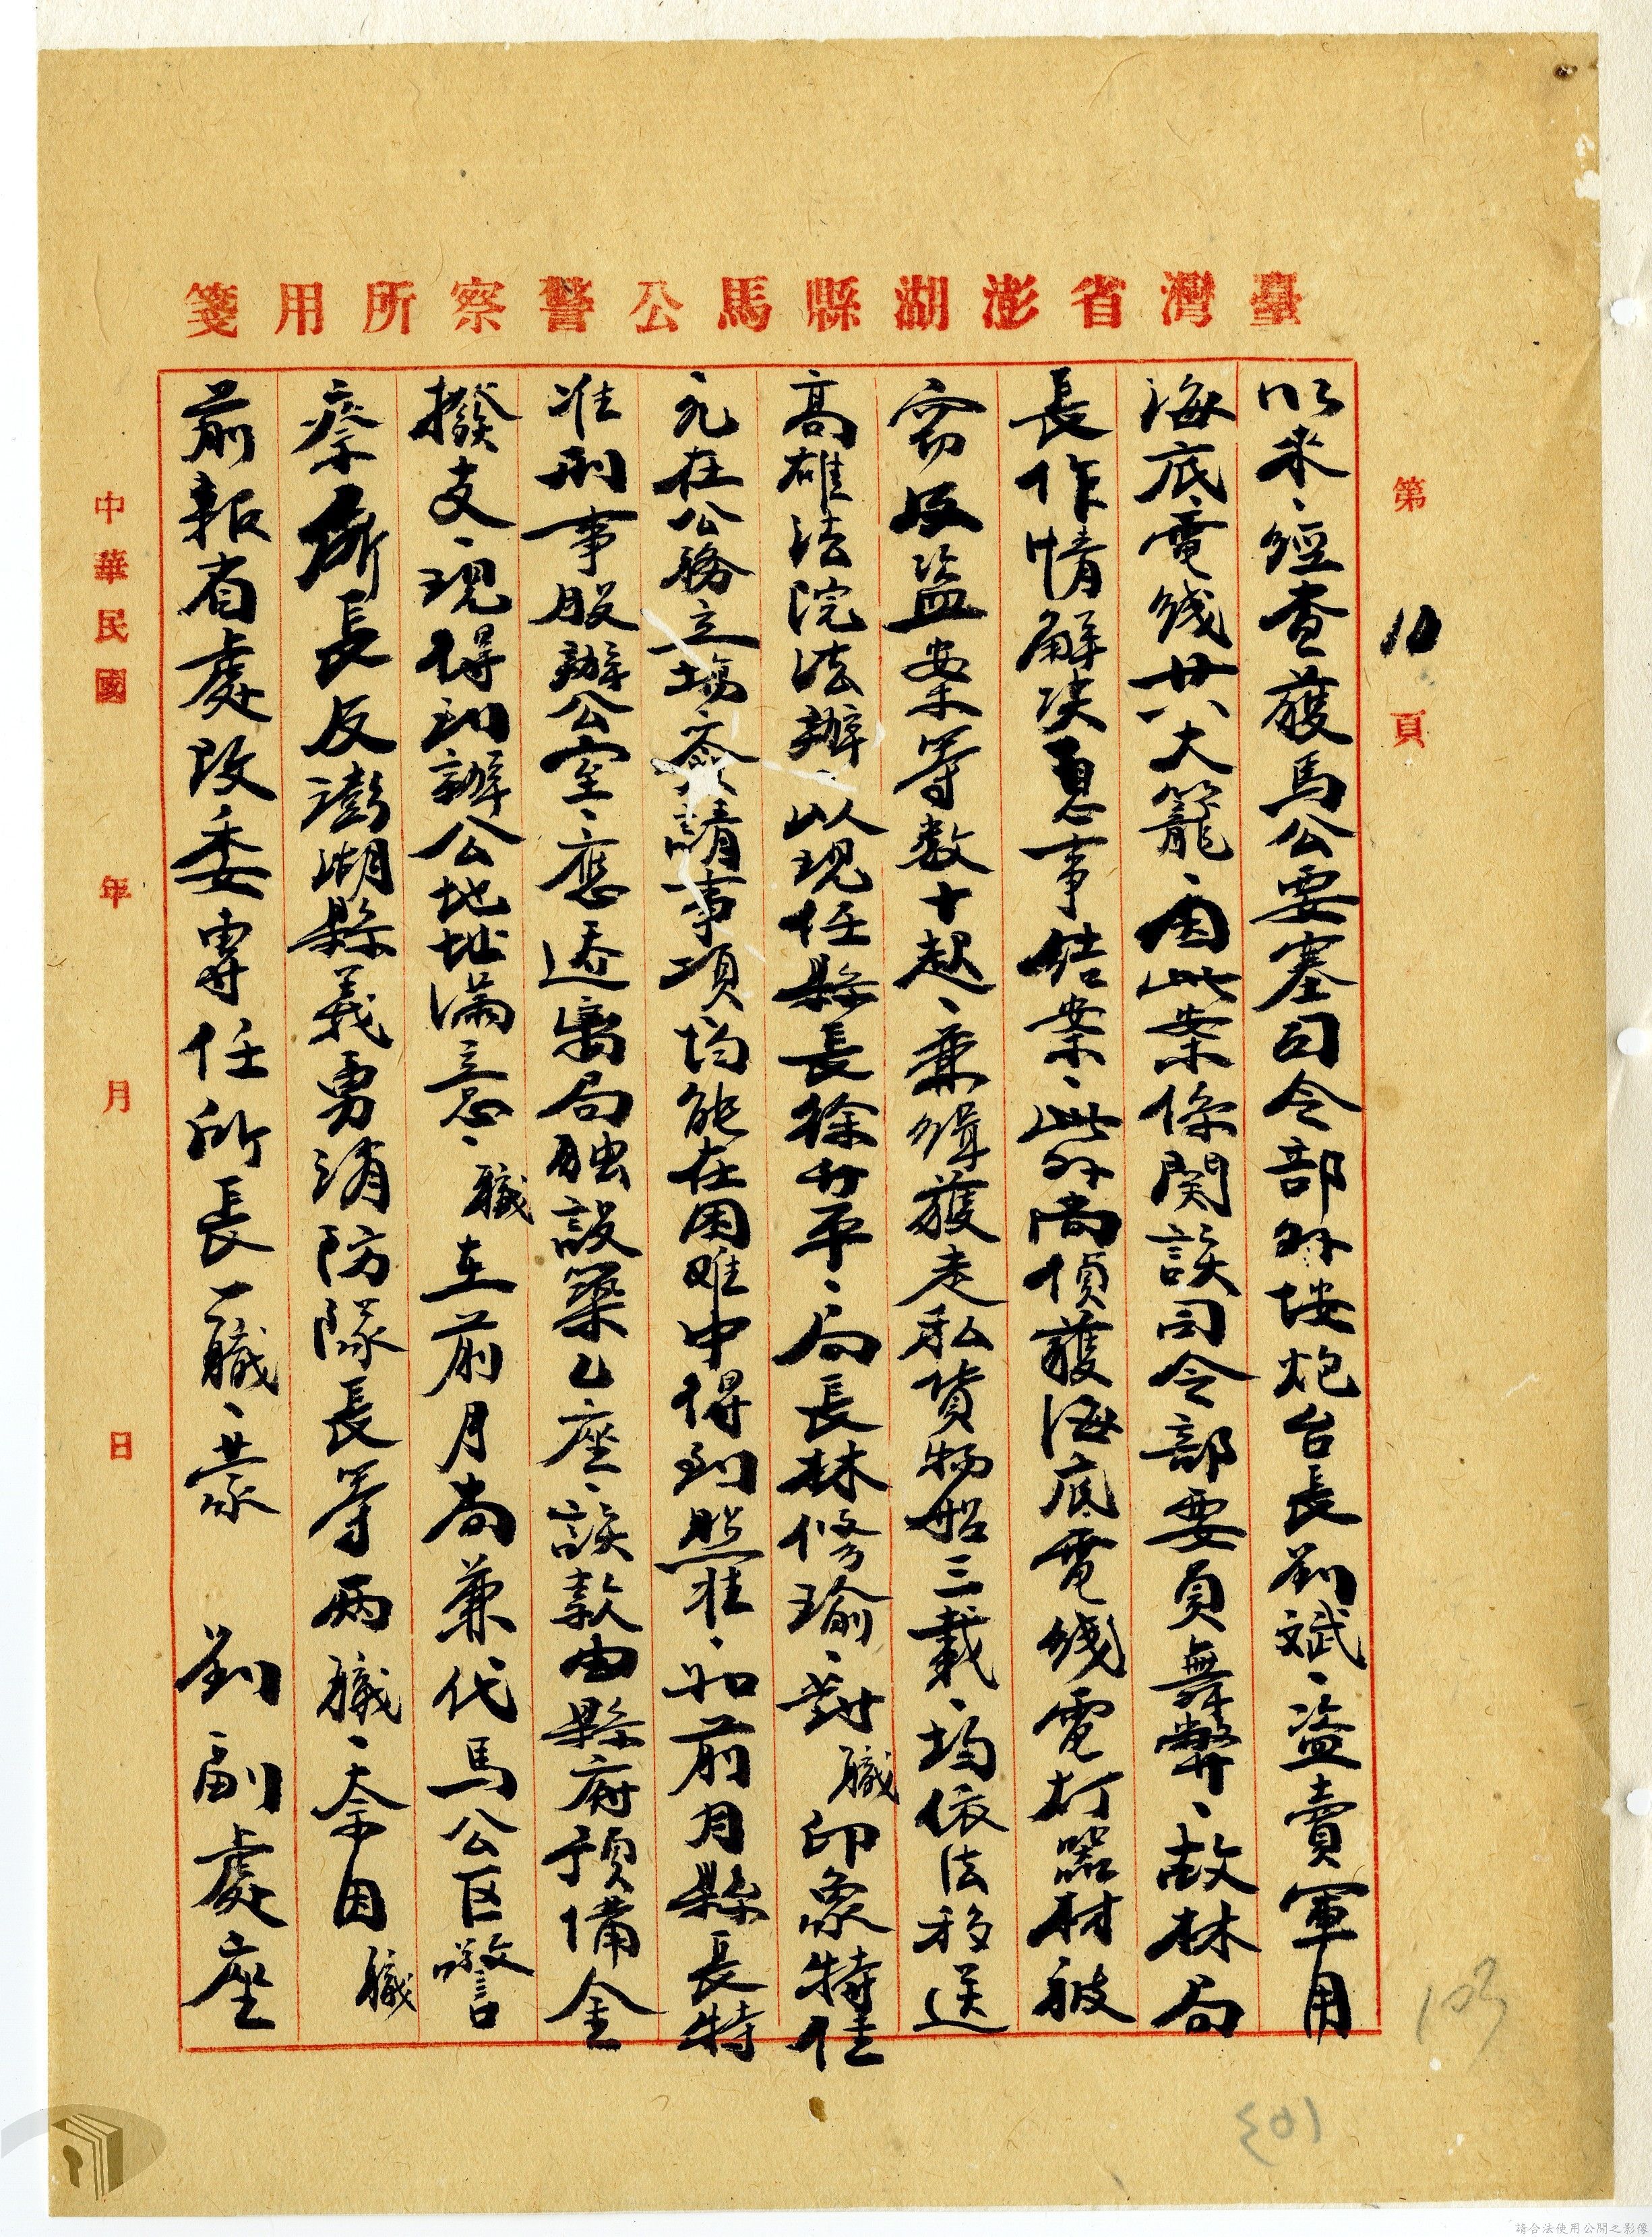 臺灣省澎湖縣馬公警察所用箋
第10頁
以來、經查獲馬公要塞司令部外垵炮台長劉斌、盜賣軍用
海底電线廿八大籠、因此案係関該司令部要員舞弊、故林局
長作情解决息事结案、此外尚偵獲海底電线電打器材被
窃及盜案等数十起、兼缉獲走私貨物船三載、均依法移送
高雄法院法辦、以現任縣長徐升平、局長林修瑜、對職印象特佳
凡在公務立場簽請事項均能在困难中得到照准、如前月縣長特
准刑事股辦公室、應迁离局独設築乙座、該款由縣府預備金
撥支、現得到辦公地址滿意、職在前月尚兼代馬公区警
察所長及澎湖縣義勇消防隊長等兩職、奈因職
前報省處改委專任所長一職、蒙 劉副處座
中華民國 年 月 日
103
103
請合法使用公開之影像